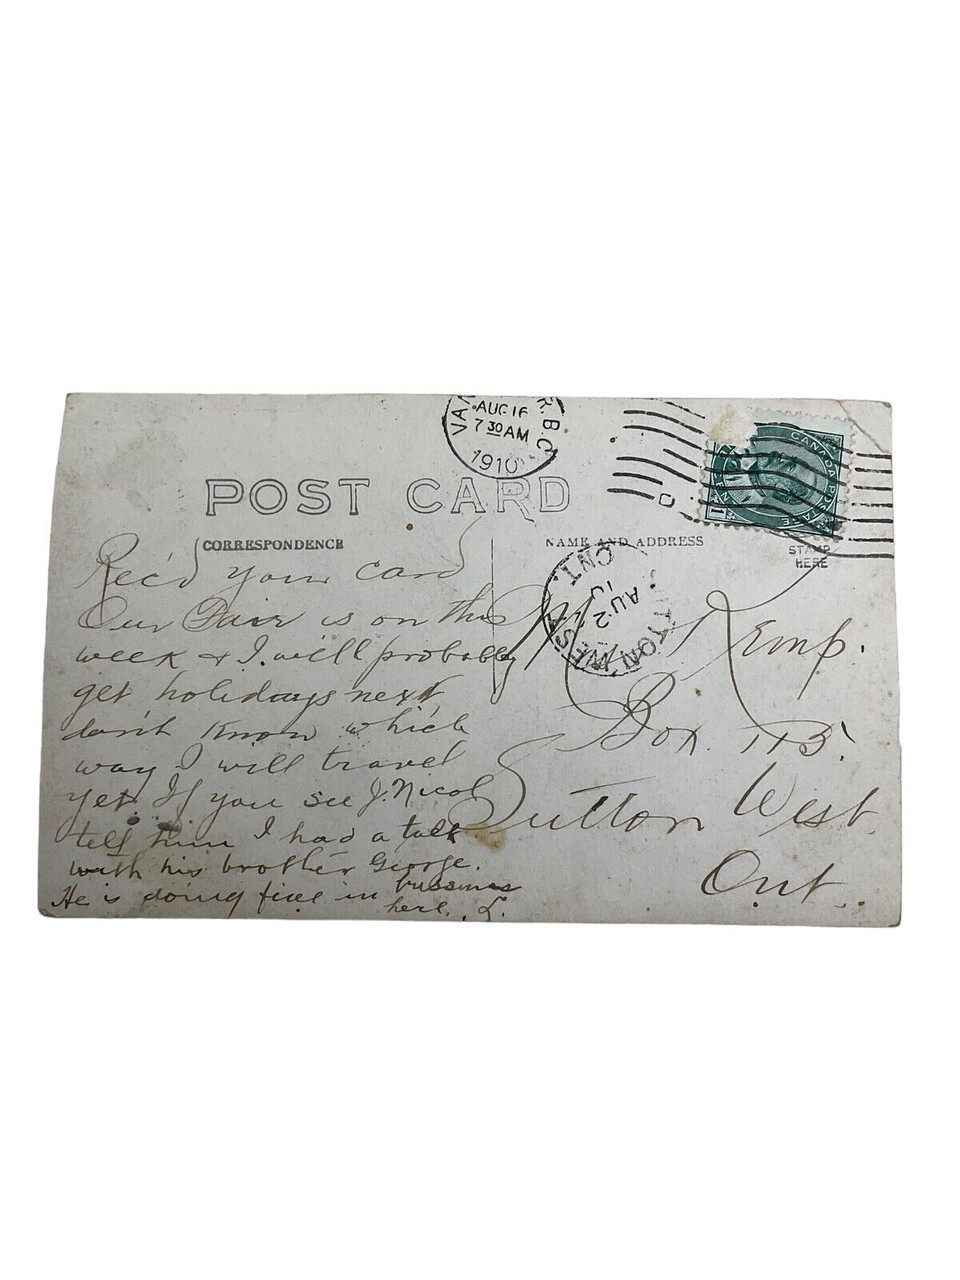 AUG 16
7 30 AM
1910
R. B.C.
POST CARD
CORRESPONDENCE
NAME AND ADDRESS
STAMP
HERE
CANADA POSTAGE
SUTTON WEST
ONT.
AU 2
10
Rec'd your card
Our Fair is on this
week & I will probably
get holidays next
don't know which
way I will travel
yet. If you see J. Nicol
tell him I had a talk
with his brother George.
He is doing fine in business
here. L.
Kemp.
Box 113
Sutton West.
Ont.